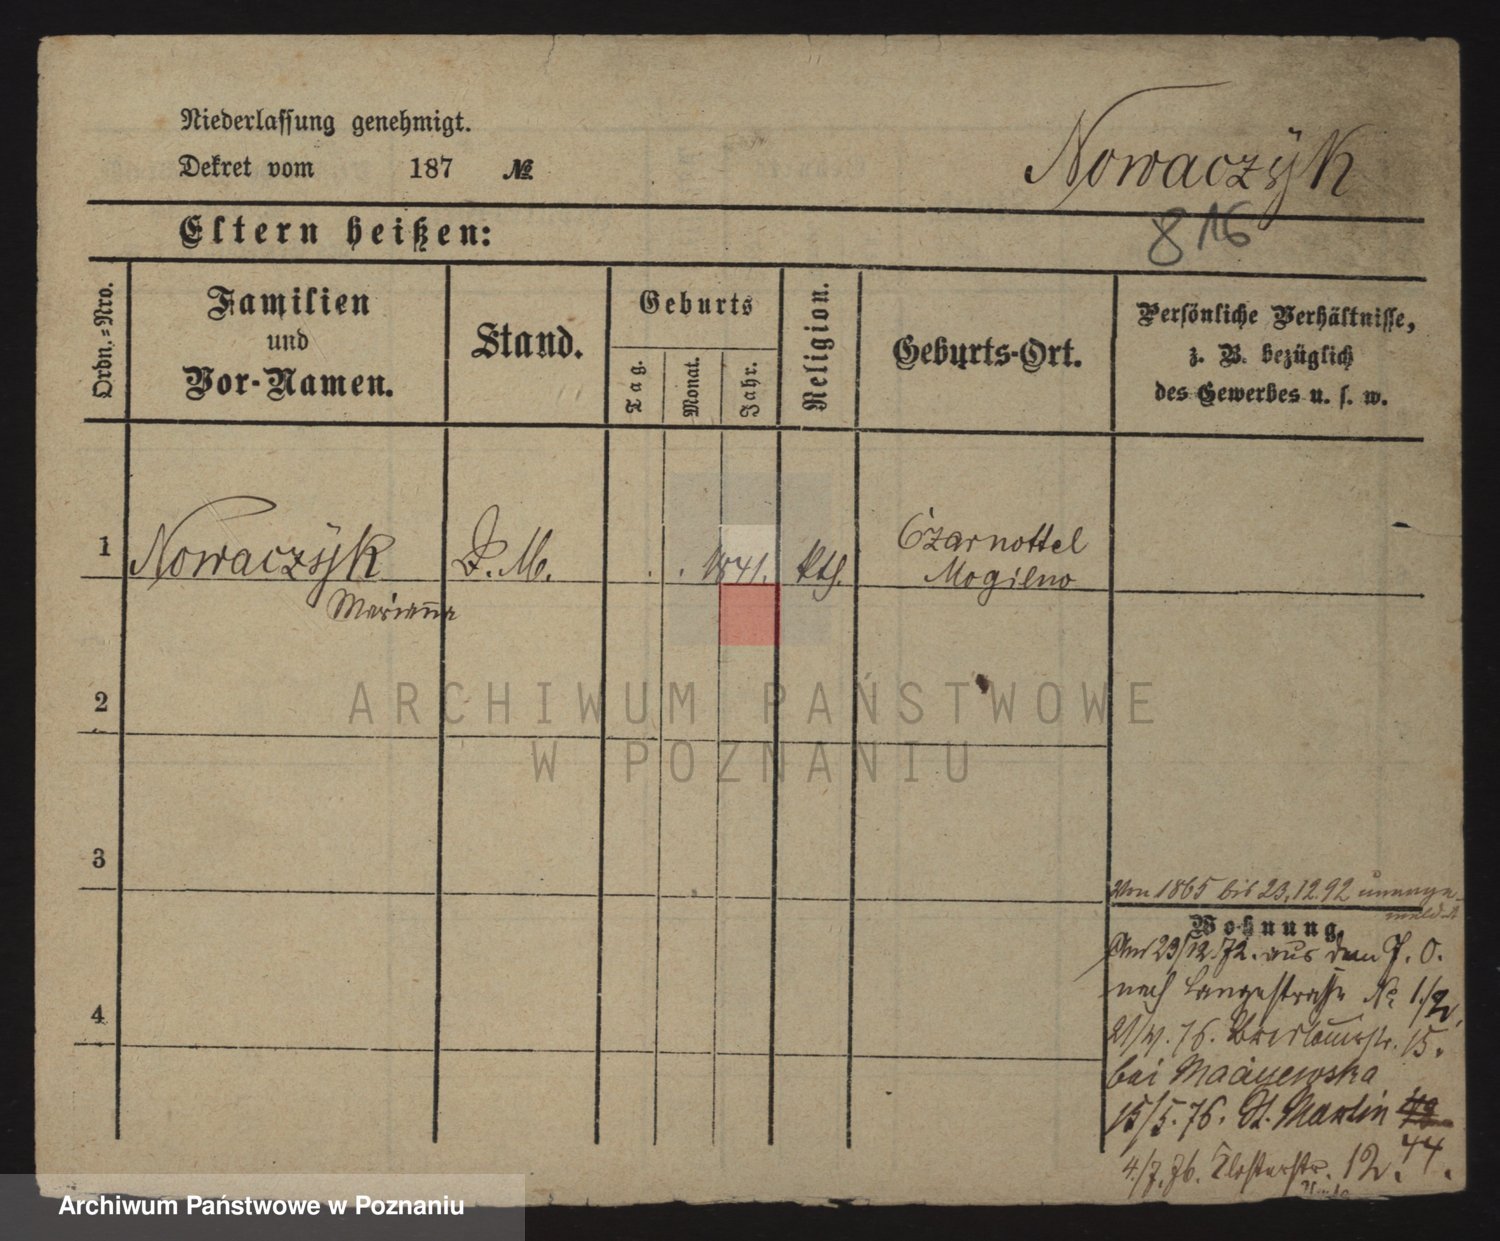 Niederlassung genehmigt.
Dekret vom 187 №
Nowaczÿk
816
Eltern heißen:
Ordn.-Nro.
Familien
und
Vor-Namen.
Stand.
Geburts
Tag.
Monat.
Jahr.
Religion.
Geburts-Ort.
Persönliche Verhältnisse,
z. B. bezüglich
des Gewerbes u. s. w.
1 Nowaczÿk D. M. . . 1841. kth. Czarnottel
Mogilno
Marianna
2
ARCHIWUM PAŃSTWOWE
W POZNANIU
3
Von 1865 bis 23.12.92 unange-
meldet
Wohnung.
Am 23/12.72. aus dem J. O.
nach Langestraße No 1/2.
4
21/4. 76. Breslauerstr. 15.
bei Macijewska
15/5. 76. St. Martin
44.
4/7. 76. Klosterstr. 12.
Archiwum Państwowe w Poznaniu